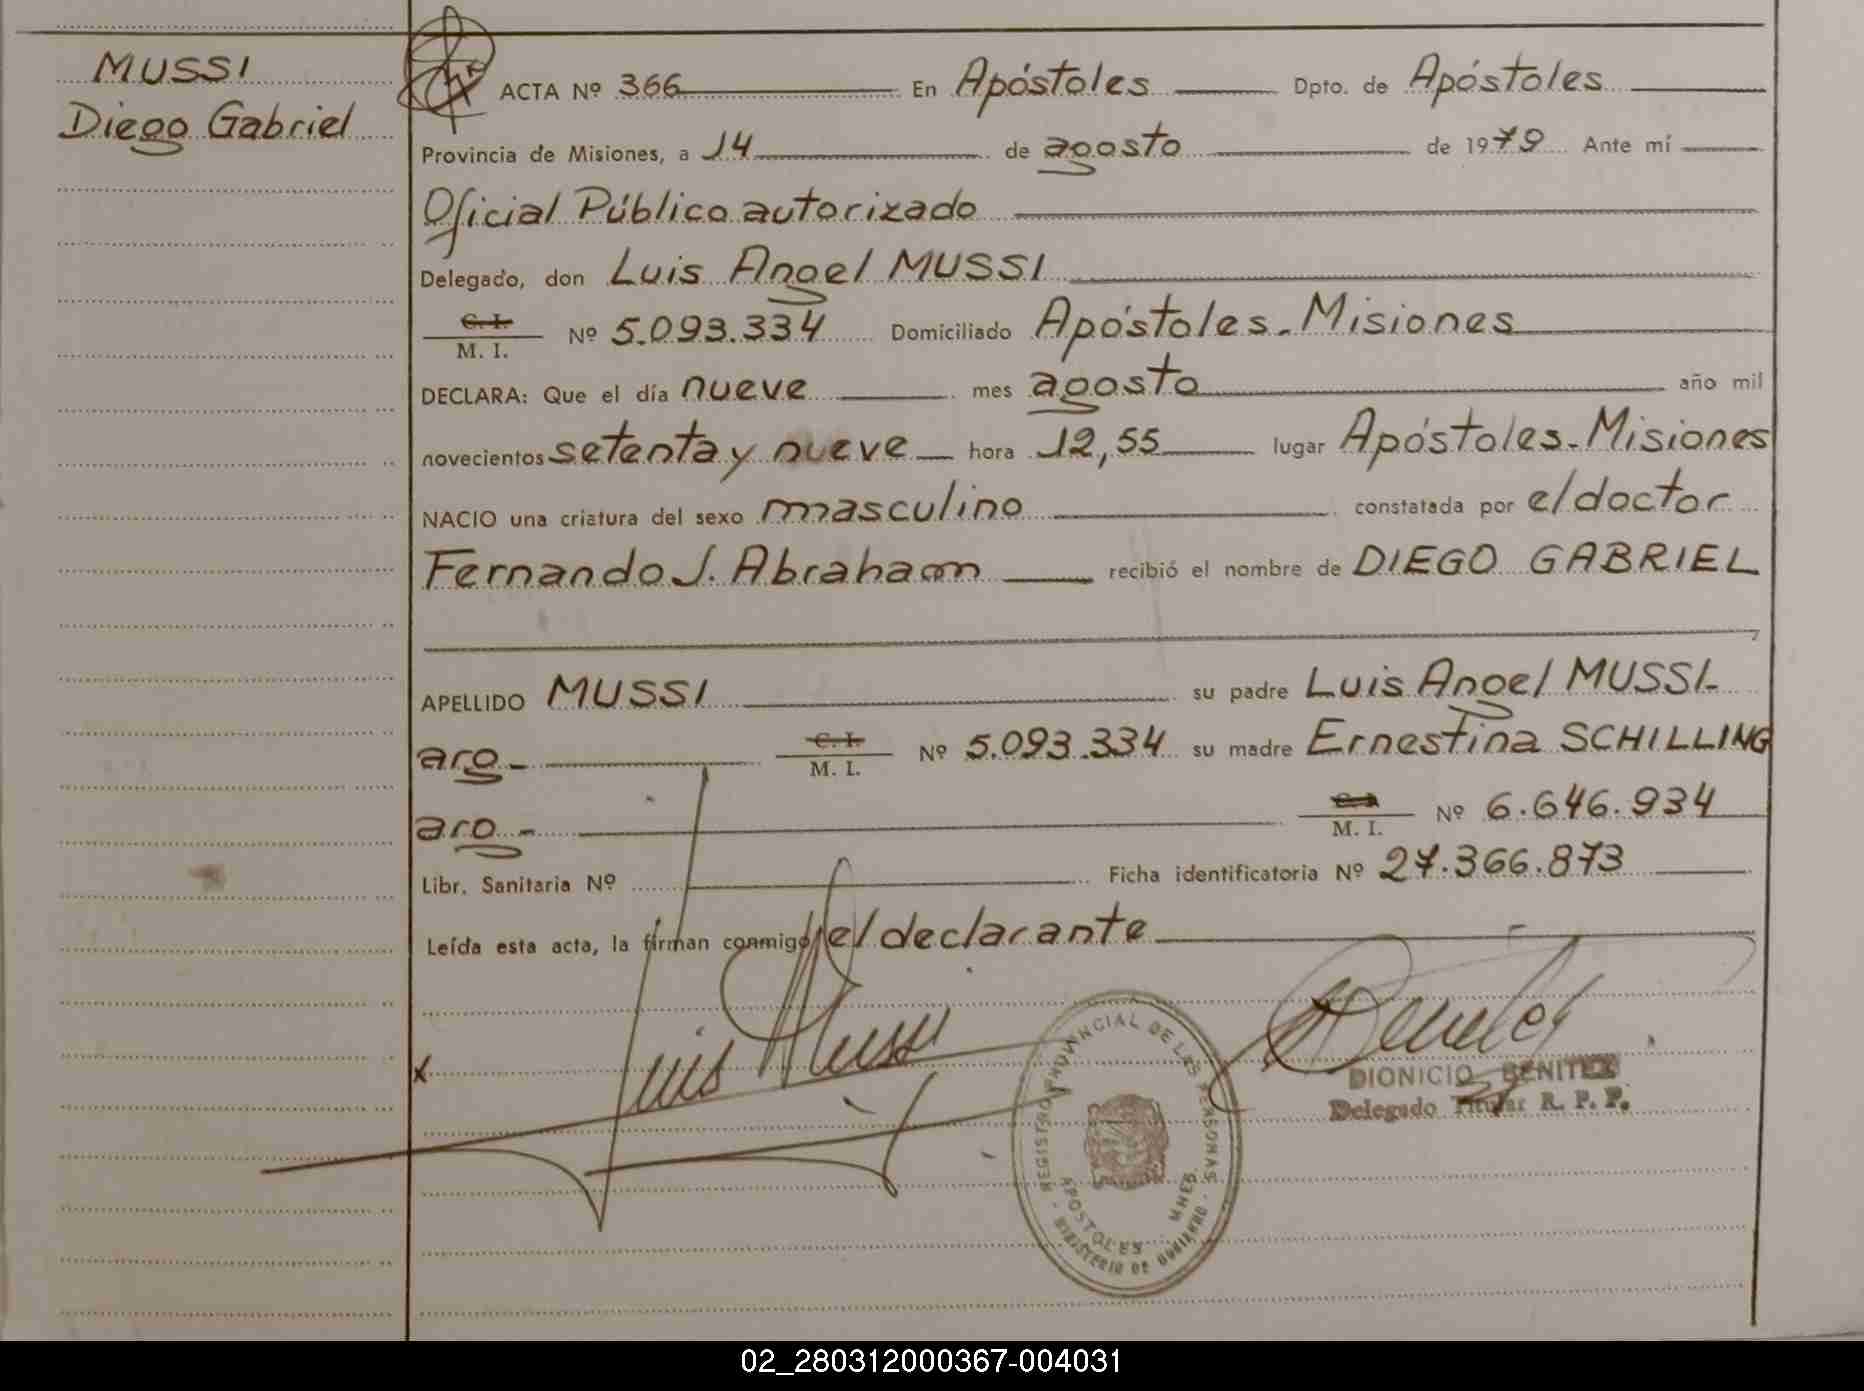 MUSSI
Diego Gabriel
ACTA Nº 366 En Apóstoles Dpto. de Apóstoles
Provincia de Misiones, a 14 de agosto de 1979 Ante mí
Oficial Público autorizado
Delegado, don Luis Angel MUSSI
C. I. M. I. Nº 5.093.334 Domiciliado Apóstoles. Misiones
DECLARA: Que el día nueve mes agosto año mil
novecientos setenta y nueve hora 12,55 lugar Apóstoles. Misiones
NACIO una criatura del sexo masculino constatada por el doctor
Fernando J. Abraham recibió el nombre de DIEGO GABRIEL
APELLIDO MUSSI su padre Luis Angel MUSSI
arg. C. I. M. I. Nº 5.093.334 su madre Ernestina SCHILLING
arg. M. I. Nº 6.646.934
Libr. Sanitaria Nº Ficha identificatoria Nº 27.366.873
Leída esta acta, la firman conmigo el declarante
x Luis Mussi
DIONICIO BENITEZ
Delegado Titular R. P. P.
REGISTRO PROVINCIAL DE LAS PERSONAS
APOSTOLES MNES.
MINISTERIO DE GOBIERNO
02_280312000367-004031